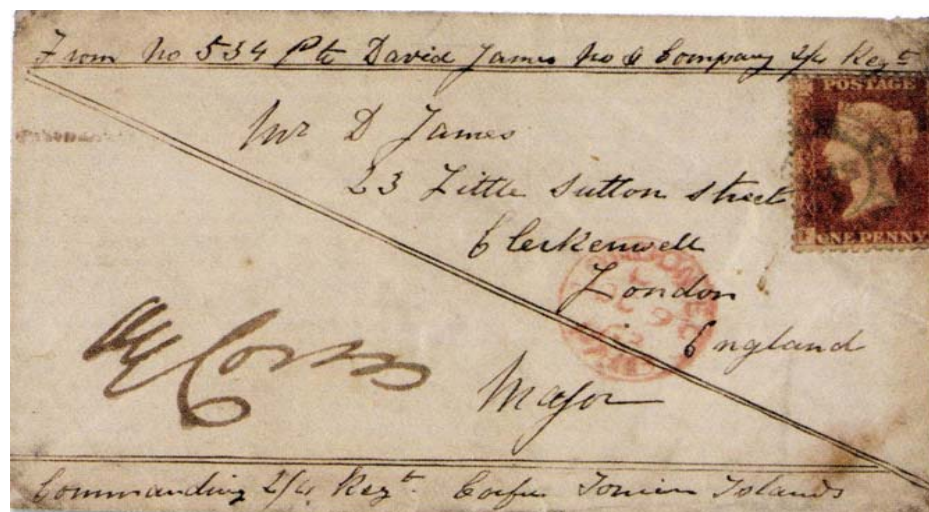 From No 534 Pte David James No 8 Company 2/4 Regt
POSTAGE
Mr D James
23 Little Sutton street
Clerkenwell
London
England
ONE PENNY
Major
Commanding 2/4 Regt. Corfu Ionian Islands